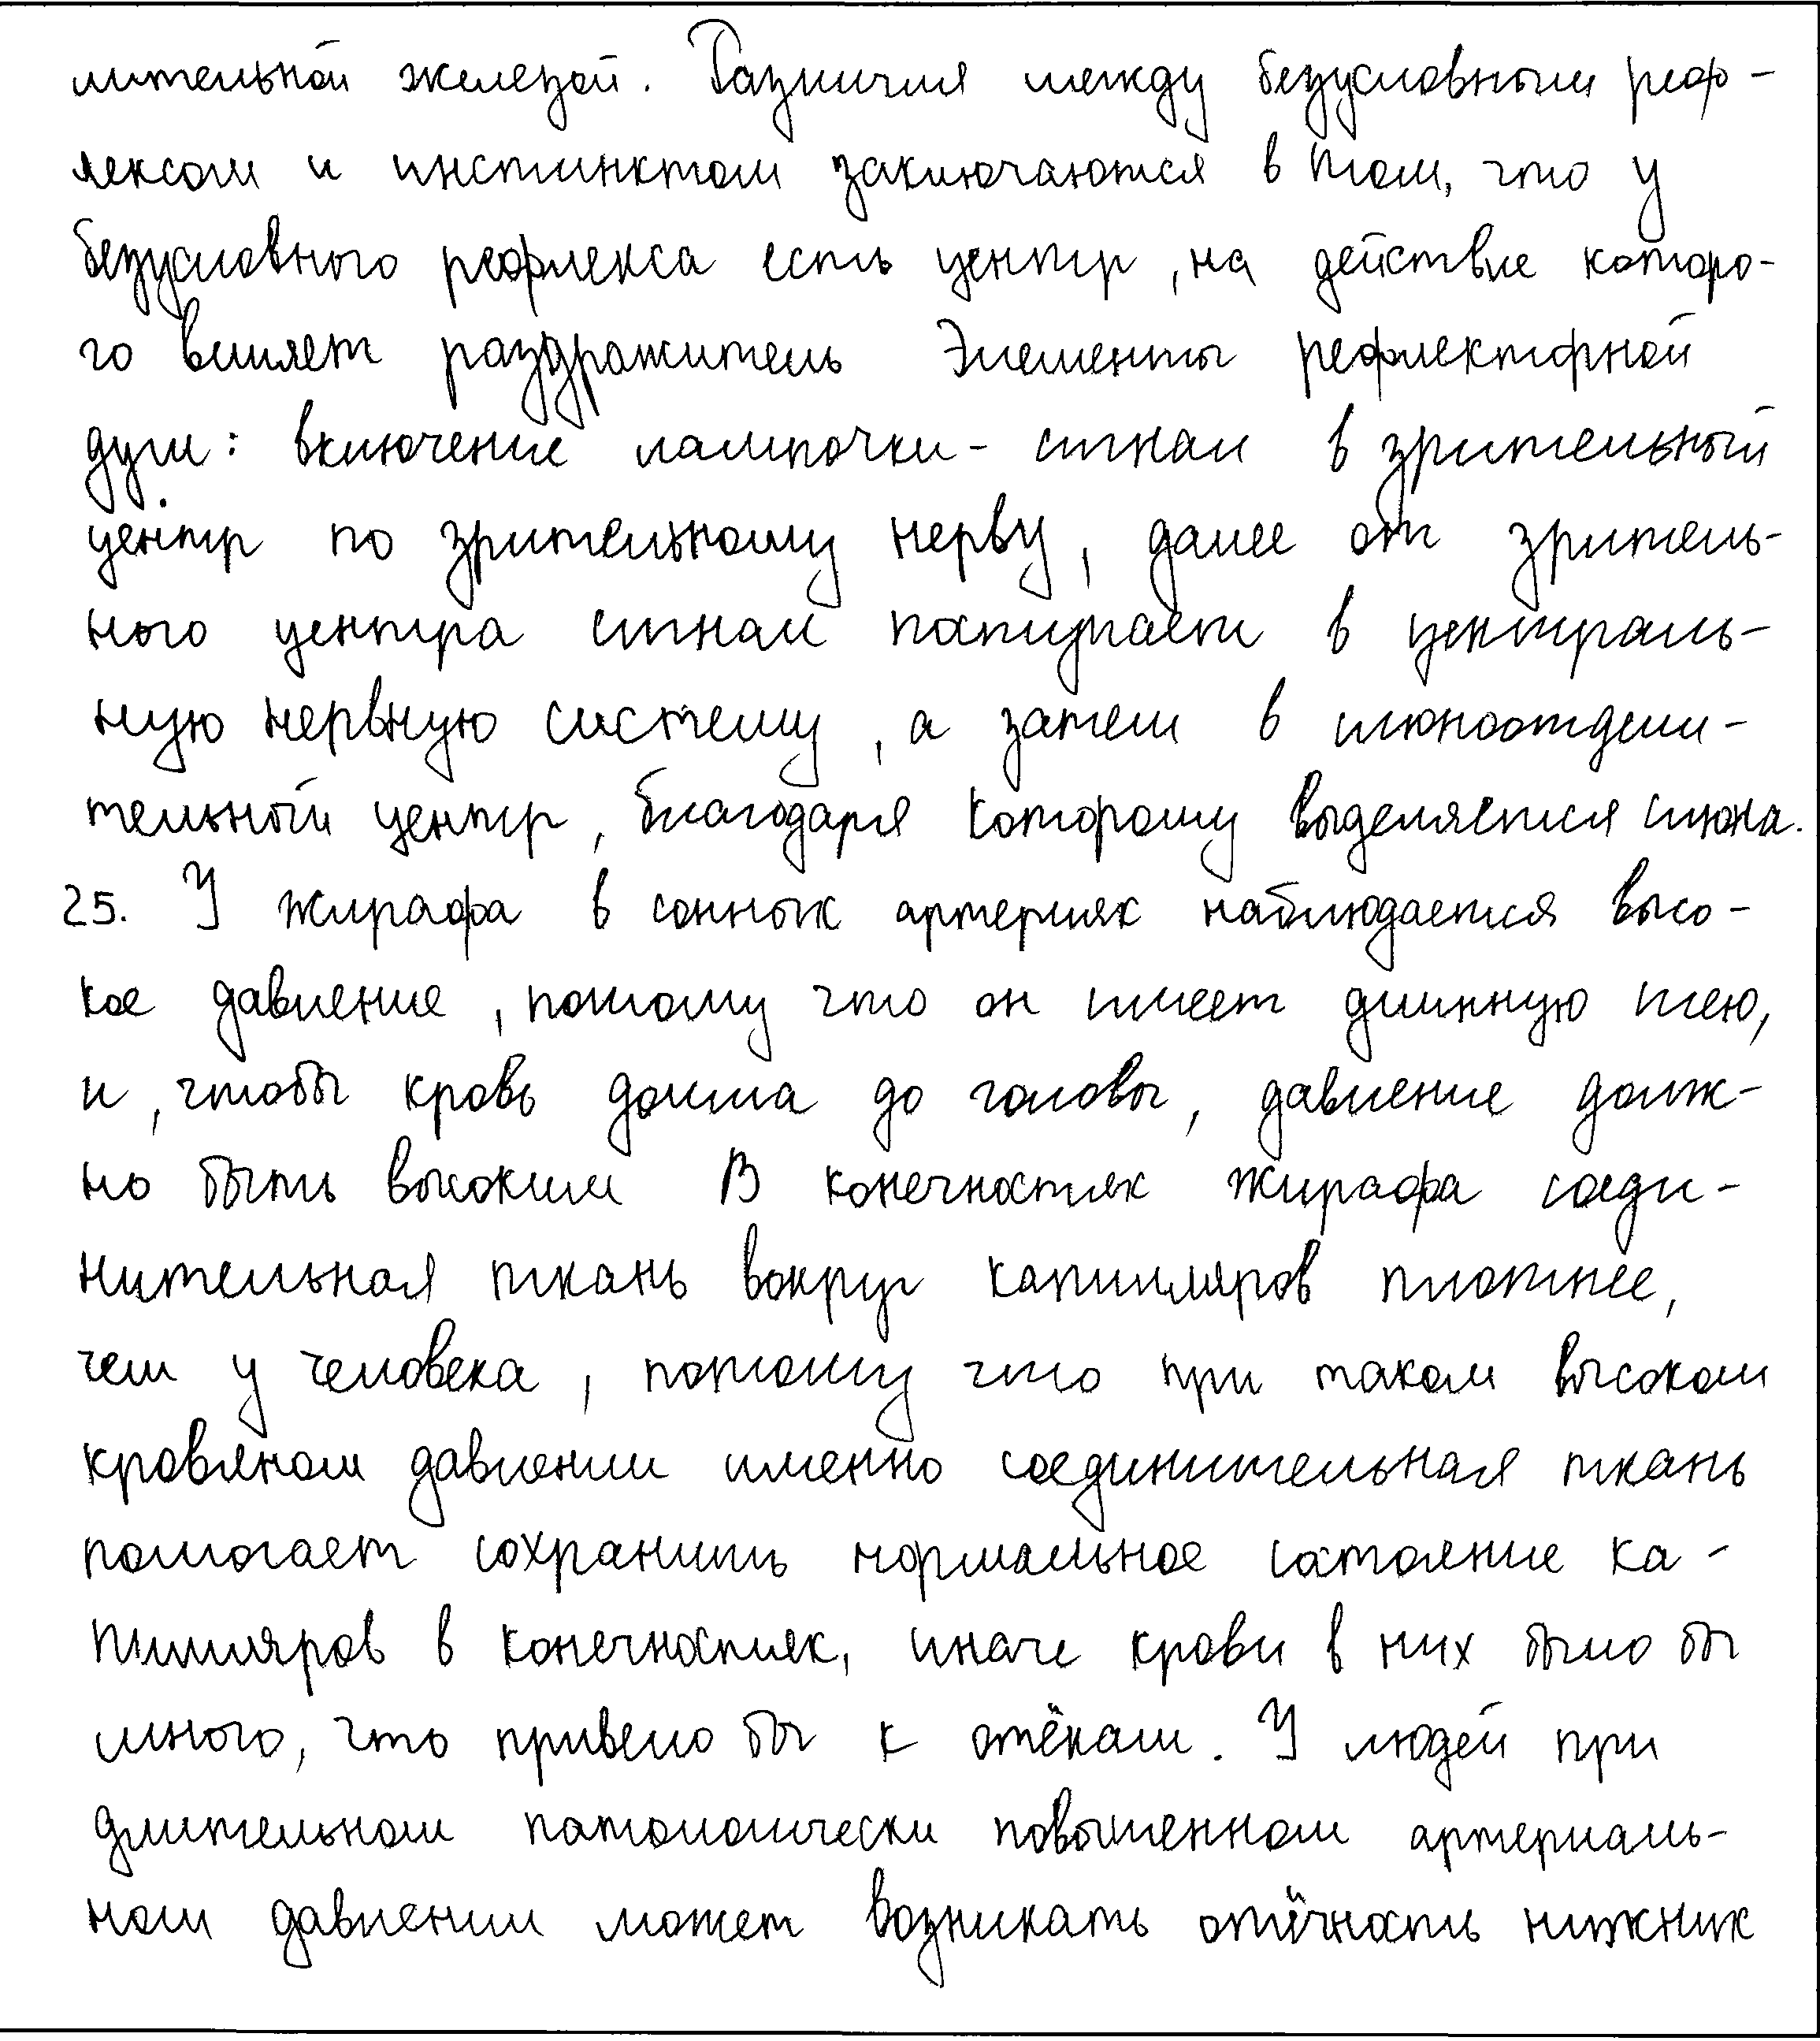 лительной железой. Различия между безусловным реф-
лексом и инстинктом заключаются в том, что у
безусловного рефлекса есть центр, на действие которо-
го влияет раздражитель Элементы рефлекторной
дуги: включение лампочки - сигнал в зрительный
центр по зрительному нерву, далее от зритель-
ного центра сигнал поступает в централь-
ную нервную систему, а затем в слюноотдели-
тельный центр, благодаря которому выделяется слюна.
25. У жирафа в сонных артериях наблюдается высо-
кое давление, потому что он имеет длинную шею,
и, чтобы кровь дошла до головы, давление долж-
но быть высоким В конечностях жирафа соеди-
нительная ткань вокруг капилляров плотнее,
чем у человека, потому что при таком высоком
кровяном давлении именно соединительная ткань
помогает сохранить нормальное состояние ка-
пилляров в конечностях, иначе крови в них было бы
много, что привело бы к отёкам. У людей при
длительном патологически повышенном артериаль-
ном давлении может возникать отёчность нижних